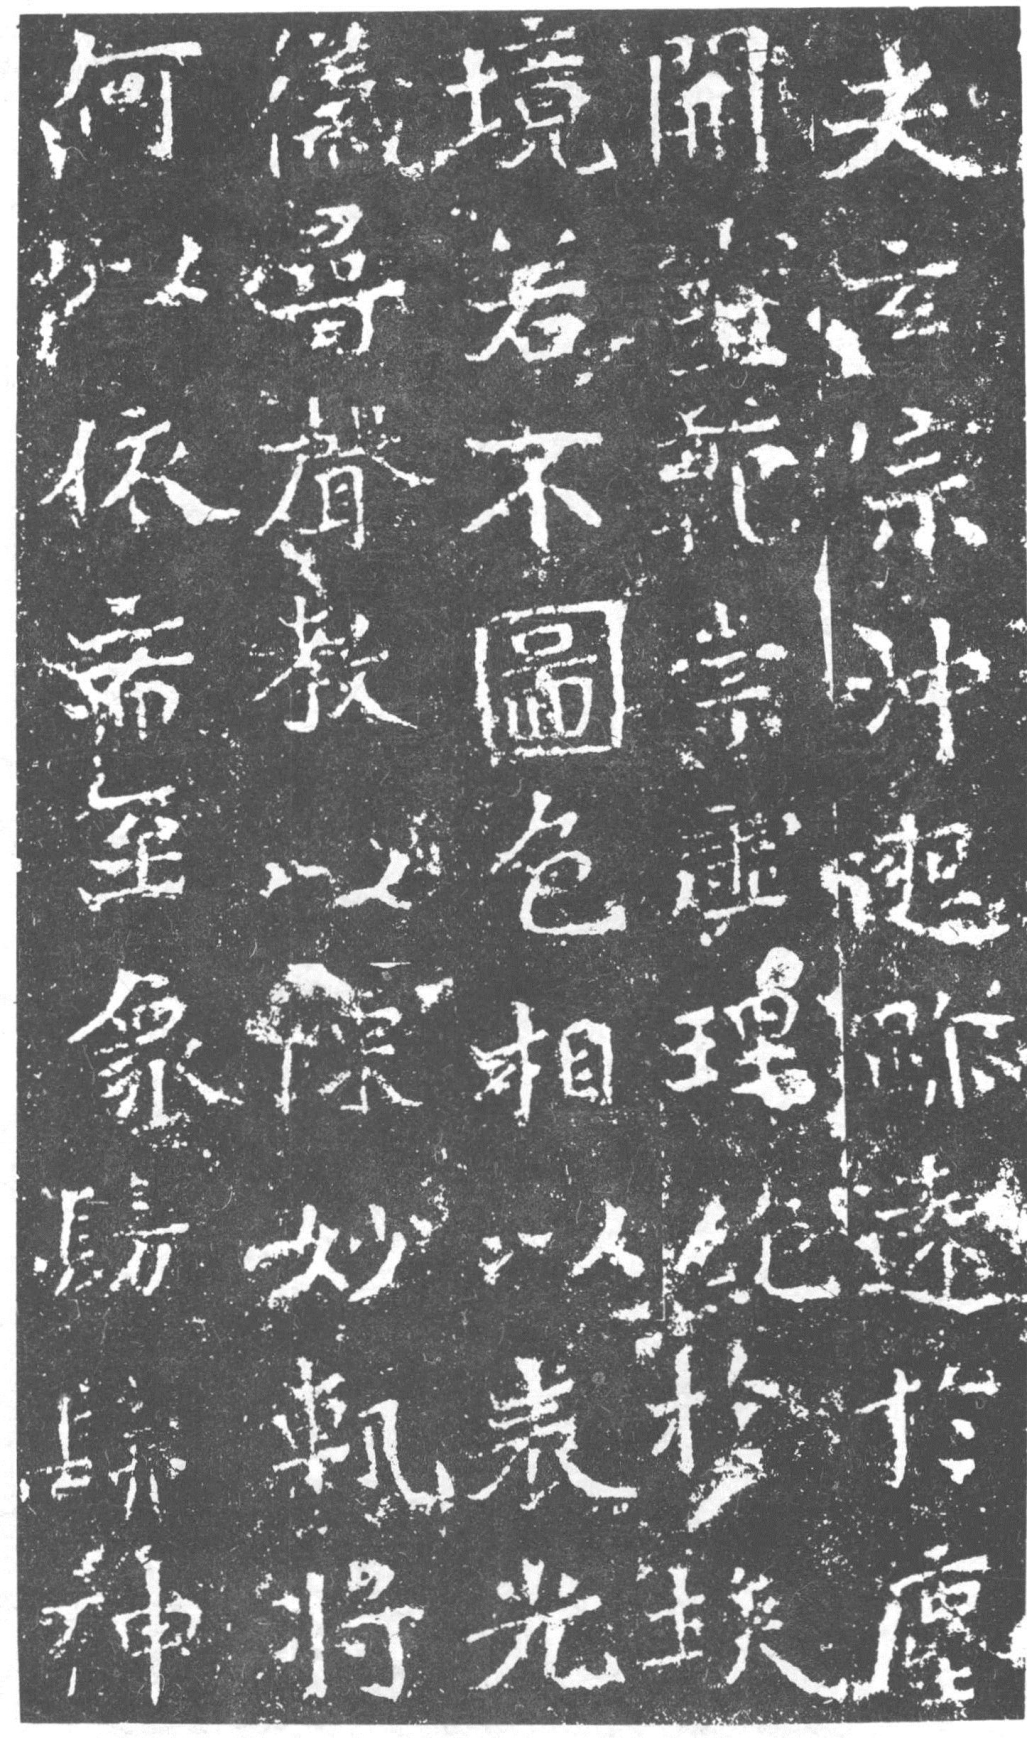 夫玄宗沖邈跡遠於塵
開靈範崇虛理絕於埃
境若不圖色相以表光
徽尋聲教以陳妙軌將
何以依希至象髣髴神